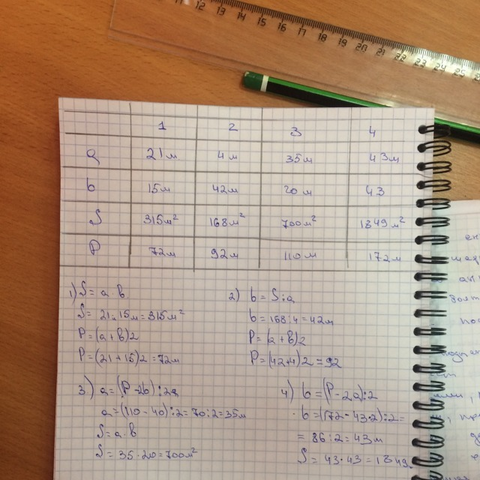 11 12 13 14 15 16 17 18 19 20 21 22 23 24 25
1 2 3 4
a 21м 4м 35м 43м
b 15м 42м 20м 43
S 315м² 168м² 700м² 1849м²
P 72м 92м 110м 172м
1) S = a·b
S = 21·15м = 315м²
P = (a+b)2
P = (21+15)2 = 72м
2) b = S:a
b = 168:4 = 42м
P = (a+b)2
P = (42+4)2 = 92
3) a = (P-2b):2a
a = (110-40):2 = 70:2 = 35м
S = a·b
S = 35·20 = 700м²
4) b = (P-2a):2
b = (172-43·2):2 =
= 86:2 = 43м
S = 43·43 = 1849